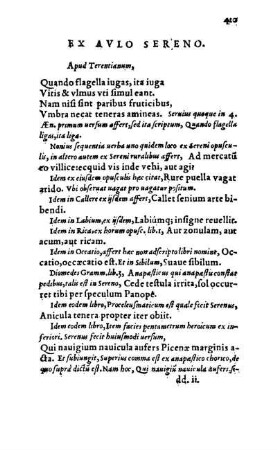 410
EX AVLO SERENO.
Apud Terentianum,
Quando flagella iugas, ita iuga
Vitis & vlmus vti simul eant.
Nam nisi sint paribus fruticibus,
Vmbra necat teneras amineas. Seruius quoque in 4.
Æn. primum uersum affert, sed ita scriptum, Quando flagella
ligas, ita liga.
Nonius sequentia uerba uno quidem loco ex Sereni opuscu-
lis, in altero autem ex Sereni ruralibus affert, Ad mercatū
eo villice: ecquid vis inde vehi, aut agi?
Idem ex eiusdem opusculis hæc citat, Rure puella vagat
arido. Vbi obseruat uagat pro uagatur positum.
Idem in Callere ex ijsdem affert, Callet senium arte bi-
bendi.
Idem in Labium, ex ijsdem, Labiumq; insigne reuellit.
Idem in Rica, ex horum opusc. lib. 1, Aut zonulam, aut
acum, aut ricam.
Idem in Occatio, affert hæc non adscripto libri nomine, Oc-
catio, occæcatio est. Et in Sibilum, Suaue sibilum.
Diomedes Gram. lib. 3, Anapæsticus qui anapæstis constat
pedibus, talis est in Sereno, Cede testula irrita, sol occur-
ret tibi per speculum Panopē.
Idem eodem libro, Proceleusmaticus est quale fecit Serenus,
Anicula tenera propter iter obiit.
Idem eodem libro, Item facies pentametrum heroicum ex in-
feriori. Serenus fecit huiusmodi uersum,
Qui nauigium nauicula aufers Picenæ marginis a-
cta. Et subiungit, Superius comma est ex anapæstico chorico, de
quo supra dictū est. Nam hoc, Qui nauigiū nauicula aufers, se-
dd. ii.